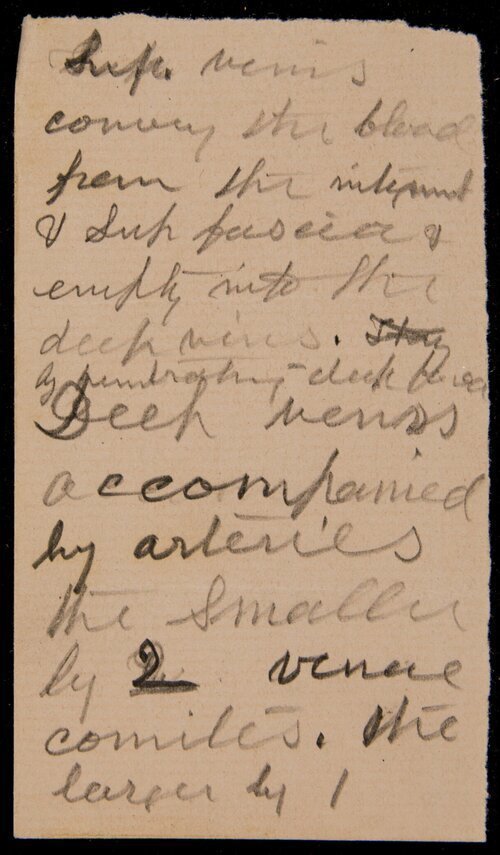 Sup. veins
convey the blood
from the integumt
& Sup fascia &
empty into the
deep veins. They
by penetrating deep fascia
Deep veins
accompanied
by arteries
the Smaller
by 2 venae
comites. the
larger by 1